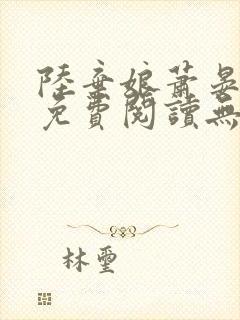 陸棄娘蕭晏
免費閱讀無
林璽